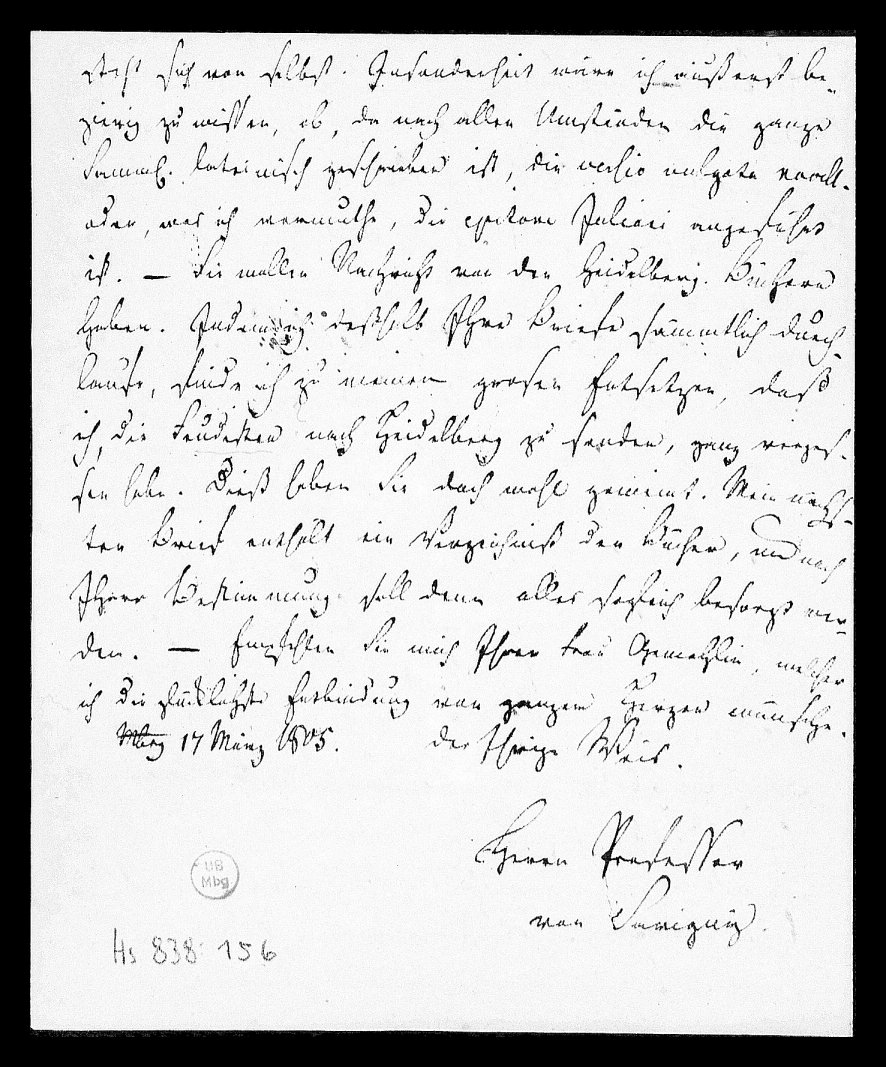 steht sich von selbst. Insonderheit wäre ich äußerst be-
gierig zu wissen, ob, da nach allen Umständen die ganze
Samml. lateinisch geschrieben ist, die versio vulgata novell.
oder, was ich vermuthe, die epitome Juliani angeführt
ist. — Sie wollen Nachricht von den Heidelberg. Büchern
haben. Indem ich deßhalb Ihre Briefe sämmtlich durch-
laufe, finde ich zu meinem grosen Entsetzen, daß
ich, die Feudisten nach Heidelberg zu senden, ganz verges-
sen habe. Dieß haben Sie doch wohl gemeint. Mein nächs-
ter Brief enthält ein Verzeichniß der Bücher, und nach
Ihrer Bestimmung soll dann alles sogleich besorgt wer-
den. — Empfehlen Sie mich Ihrer Frau Gemahlin, welcher
ich die glücklichste Entbindung von ganzem Herzen wünsche.
Mbrg 17 März 1805. der Ihrige Weis.
Herrn Professor
von Savigny.
UB
Mbg
Hs 838: 156